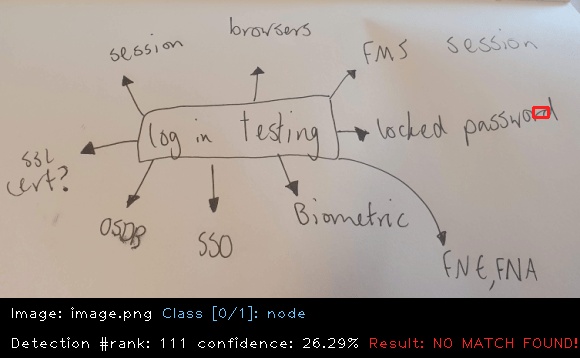 session
browsers
FMS session
log in testing
locked password
SSL
cert?
OSDB
SSO
Biometric
FNE, FNA
Image: image.png Class [0/1]: node
Detection #rank: 111 confidence: 26.29% Result: NO MATCH FOUND!